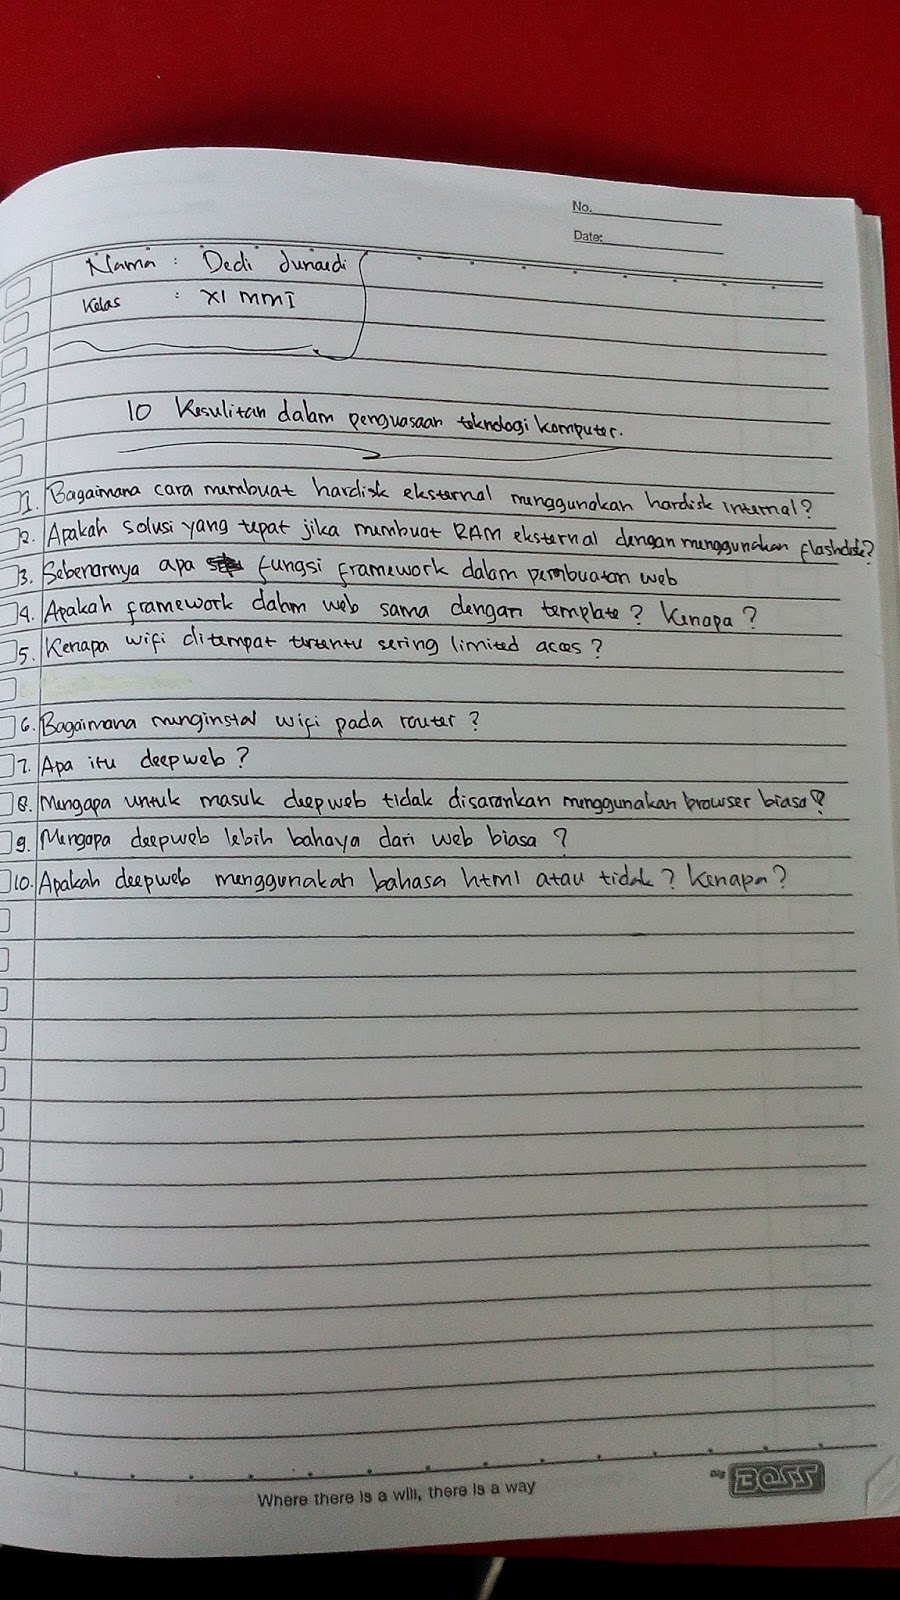 No.
Date:
Nama : Dedi Junaedi
Kelas : XI MMI
10 Kesulitan dalam penguasaan teknologi komputer.
1. Bagaimana cara membuat hardisk eksternal menggunakan hardisk internal?
2. Apakah solusi yang tepat jika membuat RAM eksternal dengan menggunakan flashdisk?
3. Sebenarnya apa fungsi framework dalam pembuatan web
4. Apakah framework dalam web sama dengan template? Kenapa?
5. Kenapa wifi ditempat tertentu sering limited acces?
6. Bagaimana menginstal wifi pada router?
7. Apa itu deepweb?
8. Mengapa untuk masuk deepweb tidak disarankan menggunakan browser biasa?
9. Mengapa deepweb lebih bahaya dari web biasa?
10. Apakah deepweb menggunakan bahasa html atau tidak? Kenapa?
Where there is a will, there is a way
BOSS